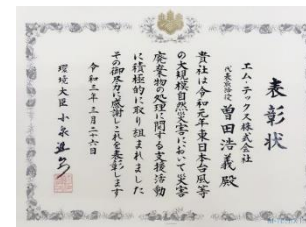 表彰状
エム・テックス株式会社
代表取締役 曽田浩義 殿
貴社は令和元年東日本台風等
の大規模自然災害において災害
廃棄物の処理に関する支援活動
に積極的に取り組まれました
その御尽力に感謝しこれを表彰します
令和三年三月二十六日
環境大臣 小泉進次郎